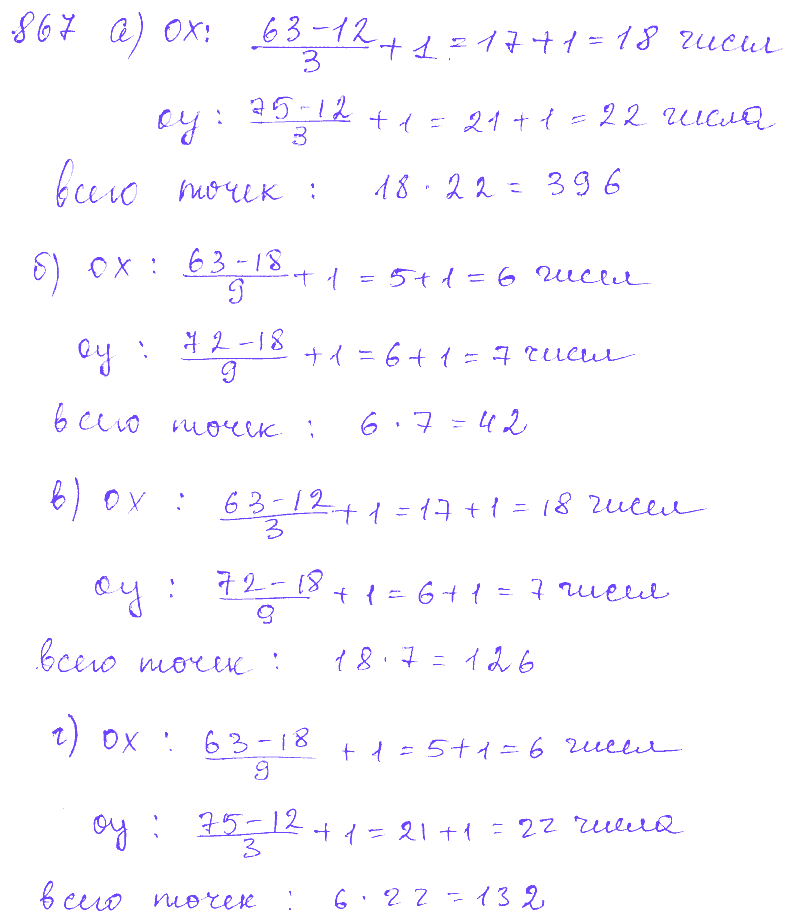 867 а) ОХ: (63-12)/3 + 1 = 17+1 = 18 чисел
ОУ: (75-12)/3 + 1 = 21+1 = 22 числа
всего точек: 18·22 = 396
б) ОХ: (63-18)/9 + 1 = 5+1 = 6 чисел
ОУ: (72-18)/9 + 1 = 6+1 = 7 чисел
всего точек: 6·7 = 42
в) ОХ: (63-12)/3 + 1 = 17+1 = 18 чисел
ОУ: (72-18)/9 + 1 = 6+1 = 7 чисел
всего точек: 18·7 = 126
г) ОХ: (63-18)/9 + 1 = 5+1 = 6 чисел
ОУ: (75-12)/3 + 1 = 21+1 = 22 числа
всего точек: 6·22 = 132